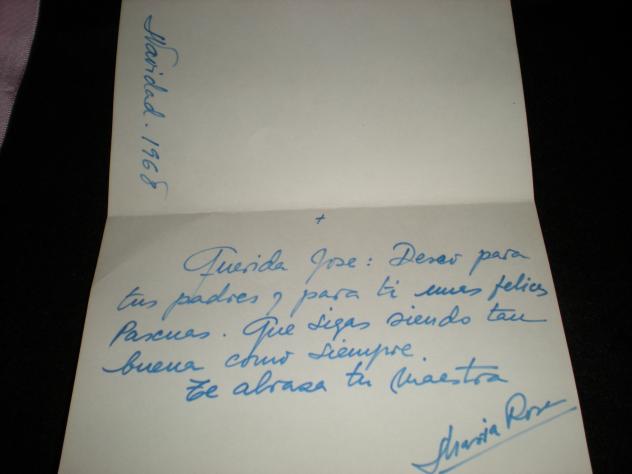 Navidad. 1968
+
Querida Jose: Deseo para
tus padres y para ti unas felices
Pascuas. Que sigas siendo tan
buena como siempre.
Te abraza tu Maestra
Maria Rosa